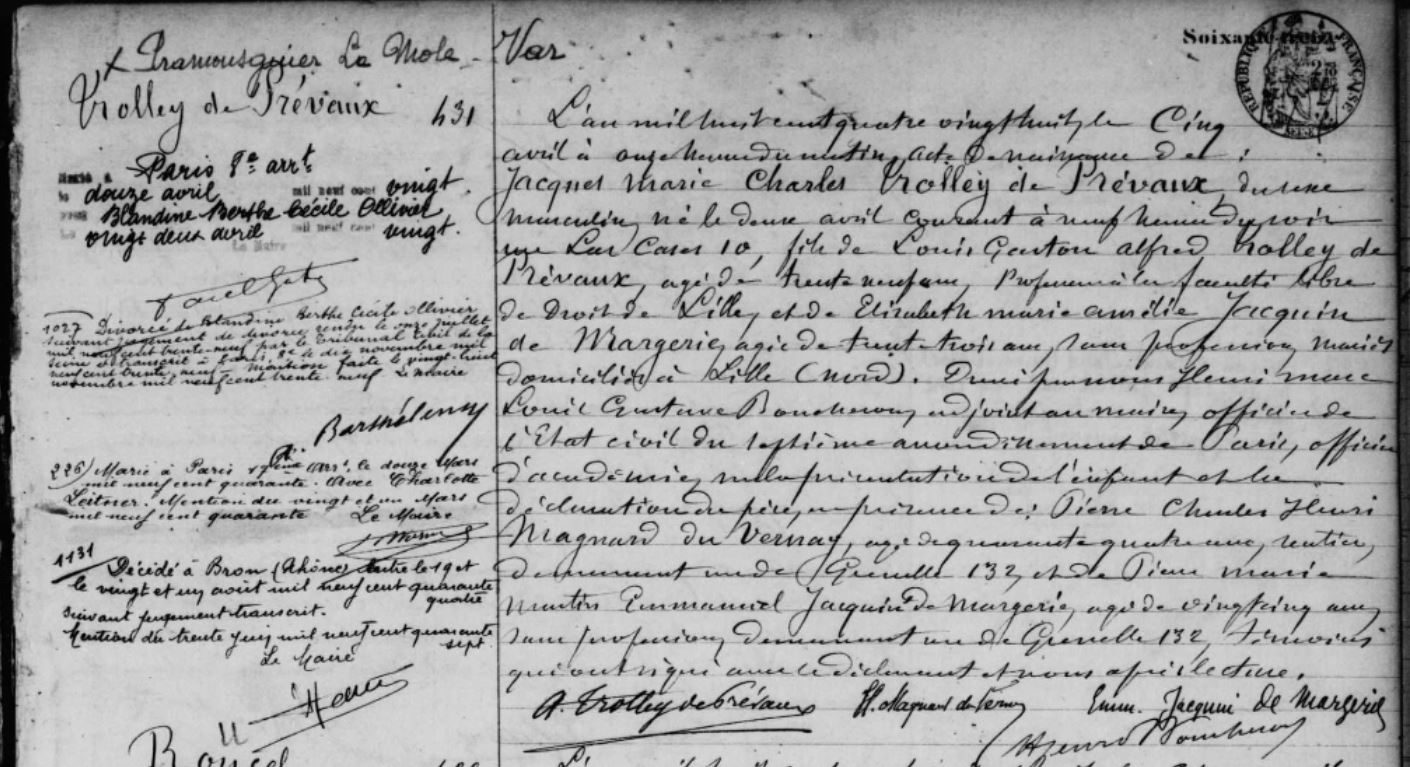 + Pramousquier La Mole - Var
Trolley de Prévaux 431
Marié à Paris 8e arrt
le douze avril mil neuf cent vingt
avec Blandine Berthe Cécile Ollivier
Le vingt deux avril mil neuf cent vingt.
Le Maire
1027 Divorcé de Blandine Berthe Cécile Ollivier
suivant jugement de divorce rendu le onze juillet
mil neuf cent trente-neuf par le Tribunal Civil de la
Seine et transcrit à Paris, 8e le dix novembre mil
neuf cent trente neuf - Mention faite le vingt-huit
novembre mil neuf cent trente-neuf Le Maire
Barthélemy
226) Marié à Paris arrt. le douze Mars
mil neuf cent quarante. Avec Charlotte
Leitner. Mention du vingt et un Mars
mil neuf cent quarante Le Maire
1131 Décédé à Bron (Rhône) entre le 19 et
le vingt et un août mil neuf cent quarante
quatre
suivant jugement transcrit.
Mention du trente juin mil neuf cent quarante
sept.
Le Maire
Soixante
RÉPUBLIQUE FRANÇAISE
L'an mil huit cent quatre vingt huit, le Cinq
avril à onze heures du matin, acte de naissance de :
Jacques Marie Charles Trolley de Prévaux, du sexe
masculin, né le deux avril courant à neuf heures du soir
rue Las Cases 10, fils de Louis Gaston Alfred Trolley de
Prévaux, agé de trente neuf ans, Professeur à la faculté libre
de Droit de Lille, et de Elisabeth Marie Amélie Jacquin
de Margerie, agée de trente trois ans, sans profession, mariés
domiciliés à Lille (Nord). Dressé par nous Henri Marc
Louis Gustave Boucheron, adjoint au maire, officier de
l'Etat civil du septième arrondissement de Paris, officier
d'académie, sur la présentation de l'enfant et la
déclaration du père, en présence de: Pierre Charles Henri
Magnard du Vernay, agé de quarante quatre ans, rentier,
demeurant rue de Grenelle 132, et de Pierre Marie
Martin Emmanuel Jacquin de Margerie, agé de vingt cinq ans,
sans profession, demeurant rue de Grenelle 132, témoins
qui ont signé avec le déclarant et nous après lecture.
A. Trolley de Prévaux H. Magnard du Vernay Emm. Jacquin de Margerie
Henri Boucheron
L'an mil